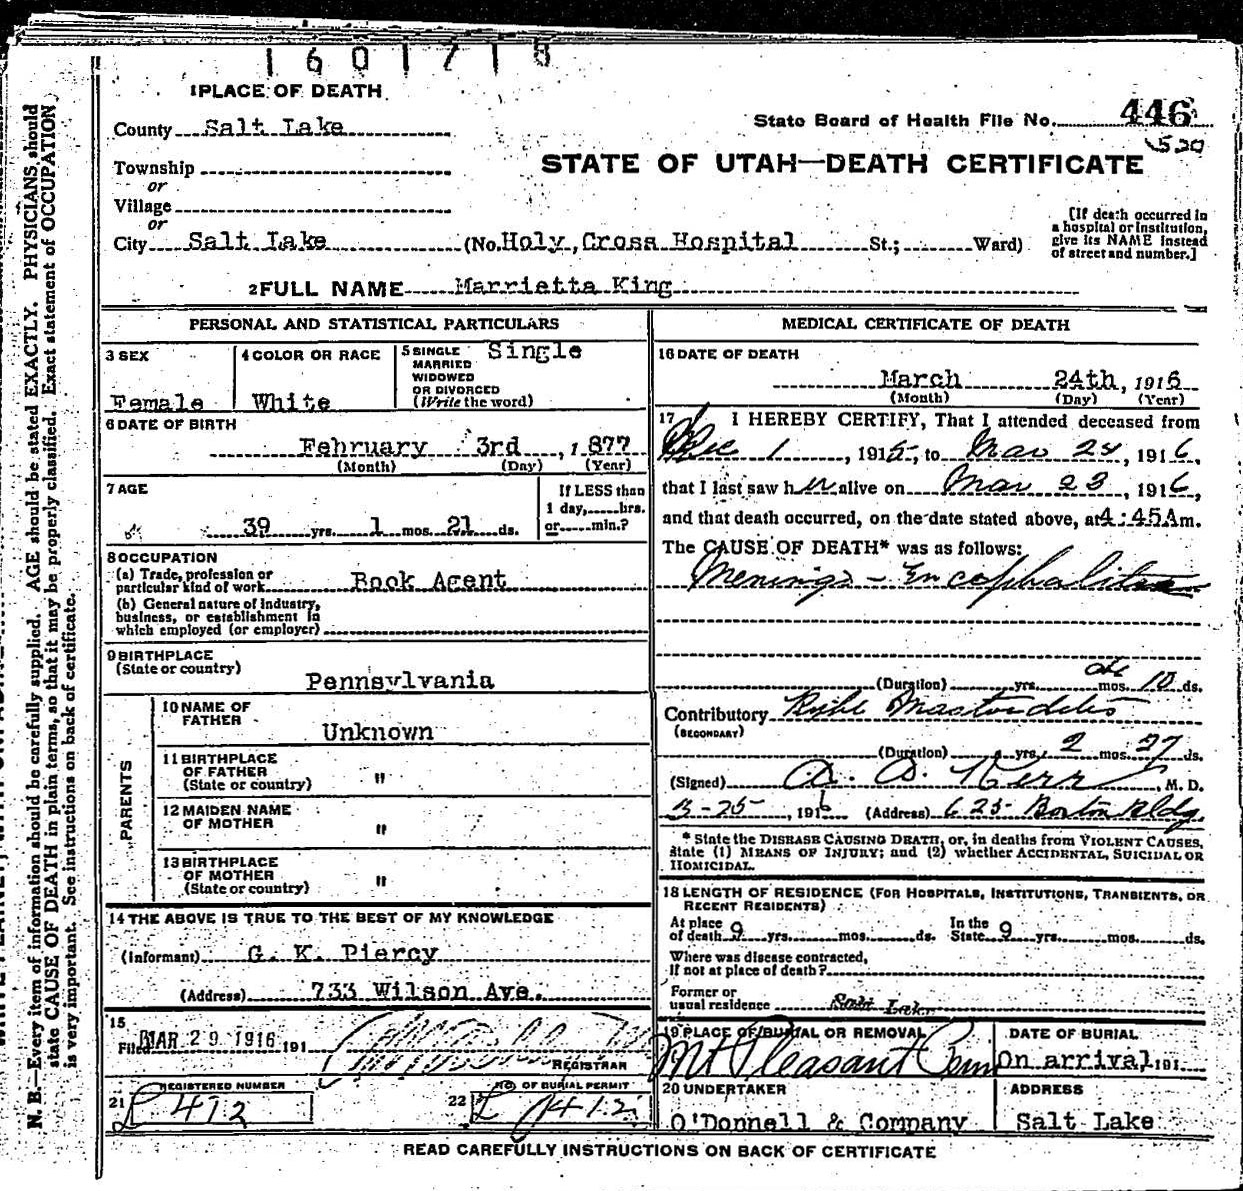 1601718
1 PLACE OF DEATH
County Salt Lake
State Board of Health File No. 446
520
STATE OF UTAH—DEATH CERTIFICATE
Township
or
Village
or
City Salt Lake (No. Holy Cross Hospital St.; Ward)
[If death occurred in
a hospital or institution,
give its NAME instead
of street and number.]
2 FULL NAME Marrietta King
PERSONAL AND STATISTICAL PARTICULARS
3 SEX
Female
4 COLOR OR RACE
White
5 SINGLE
MARRIED
WIDOWED
OR DIVORCED
(Write the word)
Single
6 DATE OF BIRTH
February 3rd, 1877
(Month) (Day) (Year)
7 AGE
39 yrs. 1 mos. 21 ds.
If LESS than
1 day, hrs.
or min.?
8 OCCUPATION
(a) Trade, profession or
particular kind of work Book Agent
(b) General nature of industry,
business, or establishment in
which employed (or employer)
9 BIRTHPLACE
(State or country)
Pennsylvania
PARENTS
10 NAME OF
FATHER
Unknown
11 BIRTHPLACE
OF FATHER
(State or country) "
12 MAIDEN NAME
OF MOTHER "
13 BIRTHPLACE
OF MOTHER
(State or country) "
14 THE ABOVE IS TRUE TO THE BEST OF MY KNOWLEDGE
(Informant) G. K. Piercy
(Address) 733 Wilson Ave.
15
Filed MAR 29 1916 191
REGISTRAR
REGISTERED NUMBER
21 L 412
NO. OF BURIAL PERMIT
22 L 1412
MEDICAL CERTIFICATE OF DEATH
16 DATE OF DEATH
March 24th, 1916
(Month) (Day) (Year)
17 I HEREBY CERTIFY, That I attended deceased from
Dec 1, 1915, to Mar 24, 1916,
that I last saw her alive on Mar 23, 1916,
and that death occurred, on the date stated above, at 4:45A m.
The CAUSE OF DEATH* was as follows:
Meningo-Encephalitis
(Duration) yrs. mos. 10 ds.
Contributory Mastoiditis
(SECONDARY)
(Duration) yrs. 2 mos. 27 ds.
(Signed) A. A. Kerr, M. D.
3-25, 1916 (Address) 625 Boston Bldg.
* State the DISEASE CAUSING DEATH, or, in deaths from VIOLENT CAUSES,
state (1) MEANS OF INJURY; and (2) whether ACCIDENTAL, SUICIDAL OR
HOMICIDAL.
18 LENGTH OF RESIDENCE (FOR HOSPITALS, INSTITUTIONS, TRANSIENTS, OR
RECENT RESIDENTS)
At place
of death 9 yrs. mos. ds.
In the
State 9 yrs. mos. ds.
Where was disease contracted,
if not at place of death?
Former or
usual residence Salt Lake
19 PLACE OF BURIAL OR REMOVAL
Mt Pleasant
DATE OF BURIAL
On arrival, 191
20 UNDERTAKER
O'Donnell & Company
ADDRESS
Salt Lake
READ CAREFULLY INSTRUCTIONS ON BACK OF CERTIFICATE
N. B.—Every item of information should be carefully supplied. AGE should be stated EXACTLY. PHYSICIANS should
state CAUSE OF DEATH in plain terms, so that it may be properly classified. Exact statement of OCCUPATION
is very important. See instructions on back of certificate.